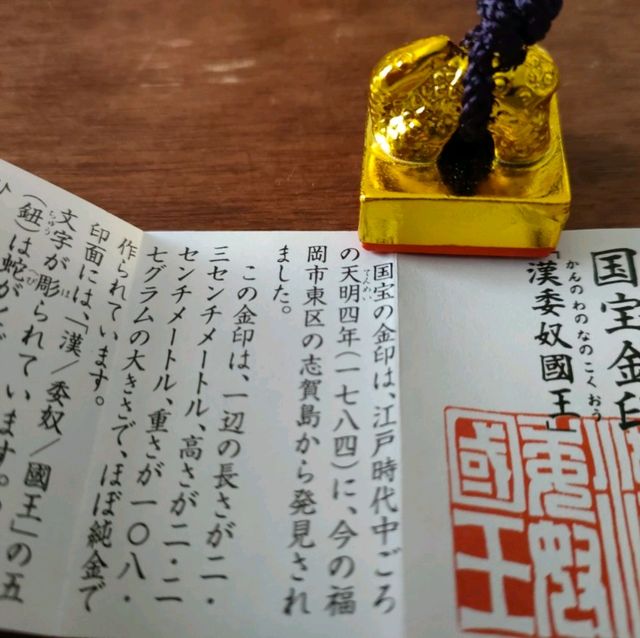 国宝金印
「漢委奴國王」
かんのわのなのこくおう
國王
委奴
国宝の金印は、江戸時代中ごろ
の天明四年(一七八四)に、今の福
てんめい
岡市東区の志賀島から発見され
ました。
この金印は、一辺の長さが二・
三センチメートル、高さが二・二
センチメートル、重さが一〇八・
七グラムの大きさで、ほぼ純金で
作られています。
印面には、「漢/委奴/國王」の五
文字が彫られています。
ほ
(鈕)は蛇がとぐ
ちゅう
へび